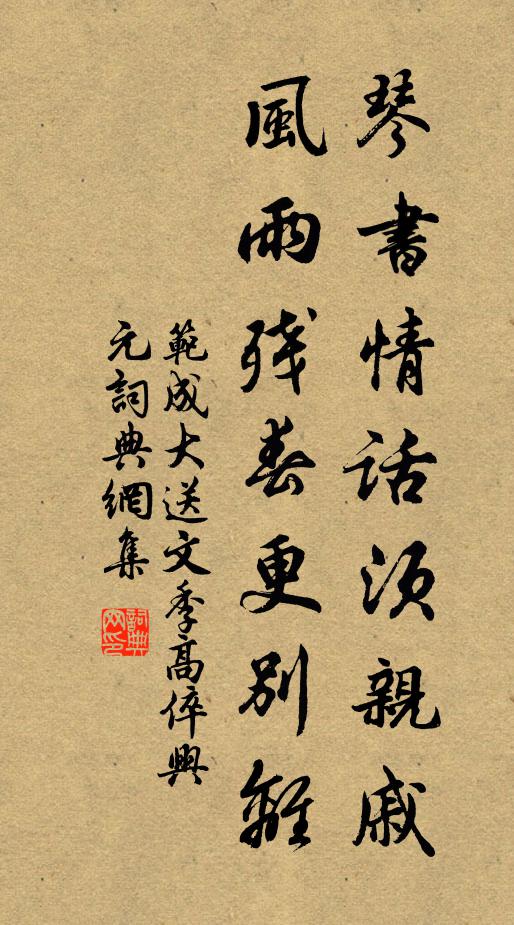 琴書情話須親戚
風雨殘春更別離
範成大送文季高倅興
元詞典網集
詞典
网印